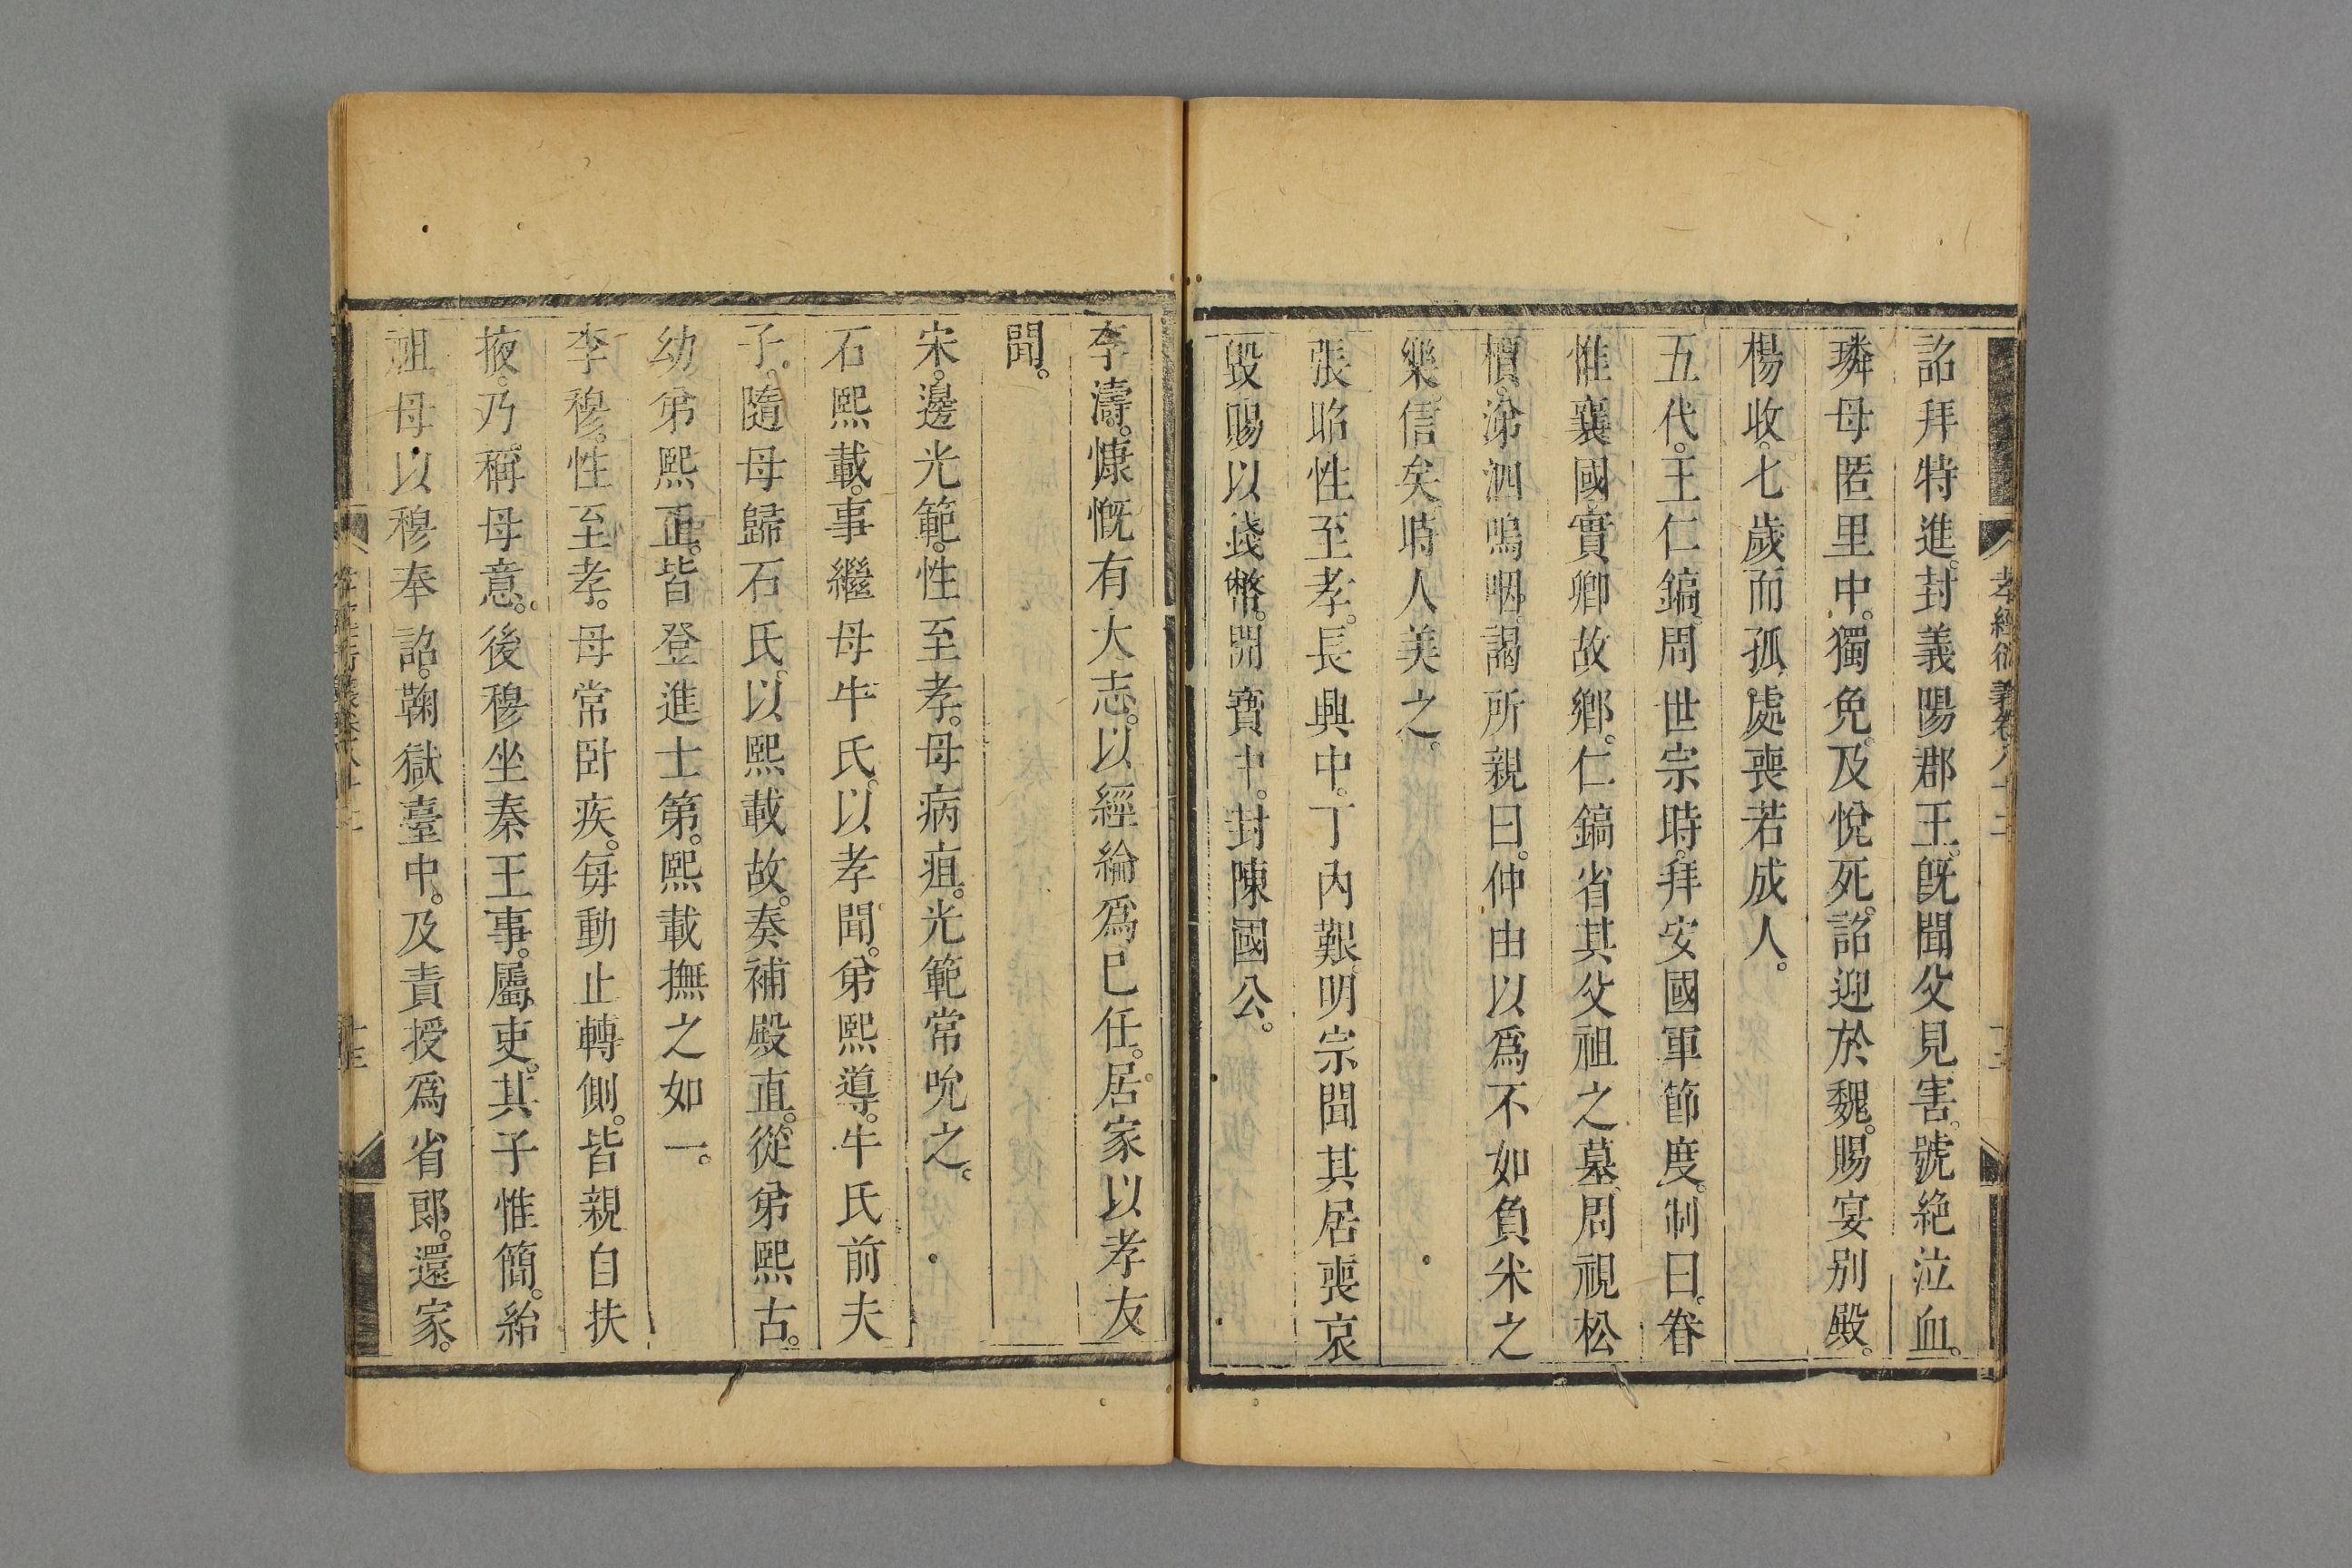 詔拜特進。封義陽郡王。旣聞父見害。號絶泣血。
璘母匿里中。獨免。及悅死。詔迎於魏。賜宴别殿。
楊收。七歲而孤。處喪若成人。
五代。王仁鎬。周世宗時。拜安國軍節度。制曰。眷
惟襄國實卿故鄉。仁鎬省其父祖之墓。周視松
檟。涕泗嗚咽。謂所親曰。仲由以爲不如負米之
樂。信矣。時人美之。
張昭性至孝。長興中。丁內艱。明宗聞其居喪哀
毀賜以錢幣。開寶中。封陳國公。
李濤。慷慨有大志。以經綸爲已任。居家以孝友
聞。
宋。邊光範。性至孝。母病疽。光範常吮之。
石熙載。事繼母牛氏。以孝聞。弟熙導。牛氏前夫
子。隨母歸石氏。以熙載故。奏補殿直。從弟熙古。
幼弟熙正。皆登進士第。熙載撫之如一。
李穆。性至孝。母常卧疾。每動止轉側。皆親自扶
掖。乃稱母意。後穆坐秦王事。屬吏。其子惟簡。紿
祖母以穆奉詔。鞠獄臺中。及責授爲省郎。還家。